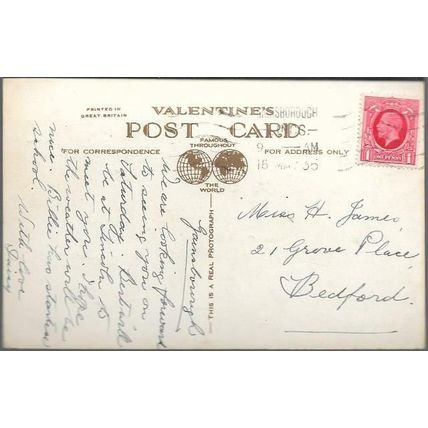 PRINTED IN
GREAT BRITAIN
VALENTINE'S
POST CARD
FOR CORRESPONDENCE
FAMOUS
THROUGHOUT
THE WORLD
FOR ADDRESS ONLY
THIS IS A REAL PHOTOGRAPH
GAINSBOROUGH
LINCS.
AM
1 ONE PENNY 1
Miss H. James,
21 Grove Place,
Bedford.
Gainsborough
We are looking forward
to seeing you on
Saturday. Bert will
be at Lincoln to
meet you. I hope
the weather will be
nice. Billie has started
school.
With love